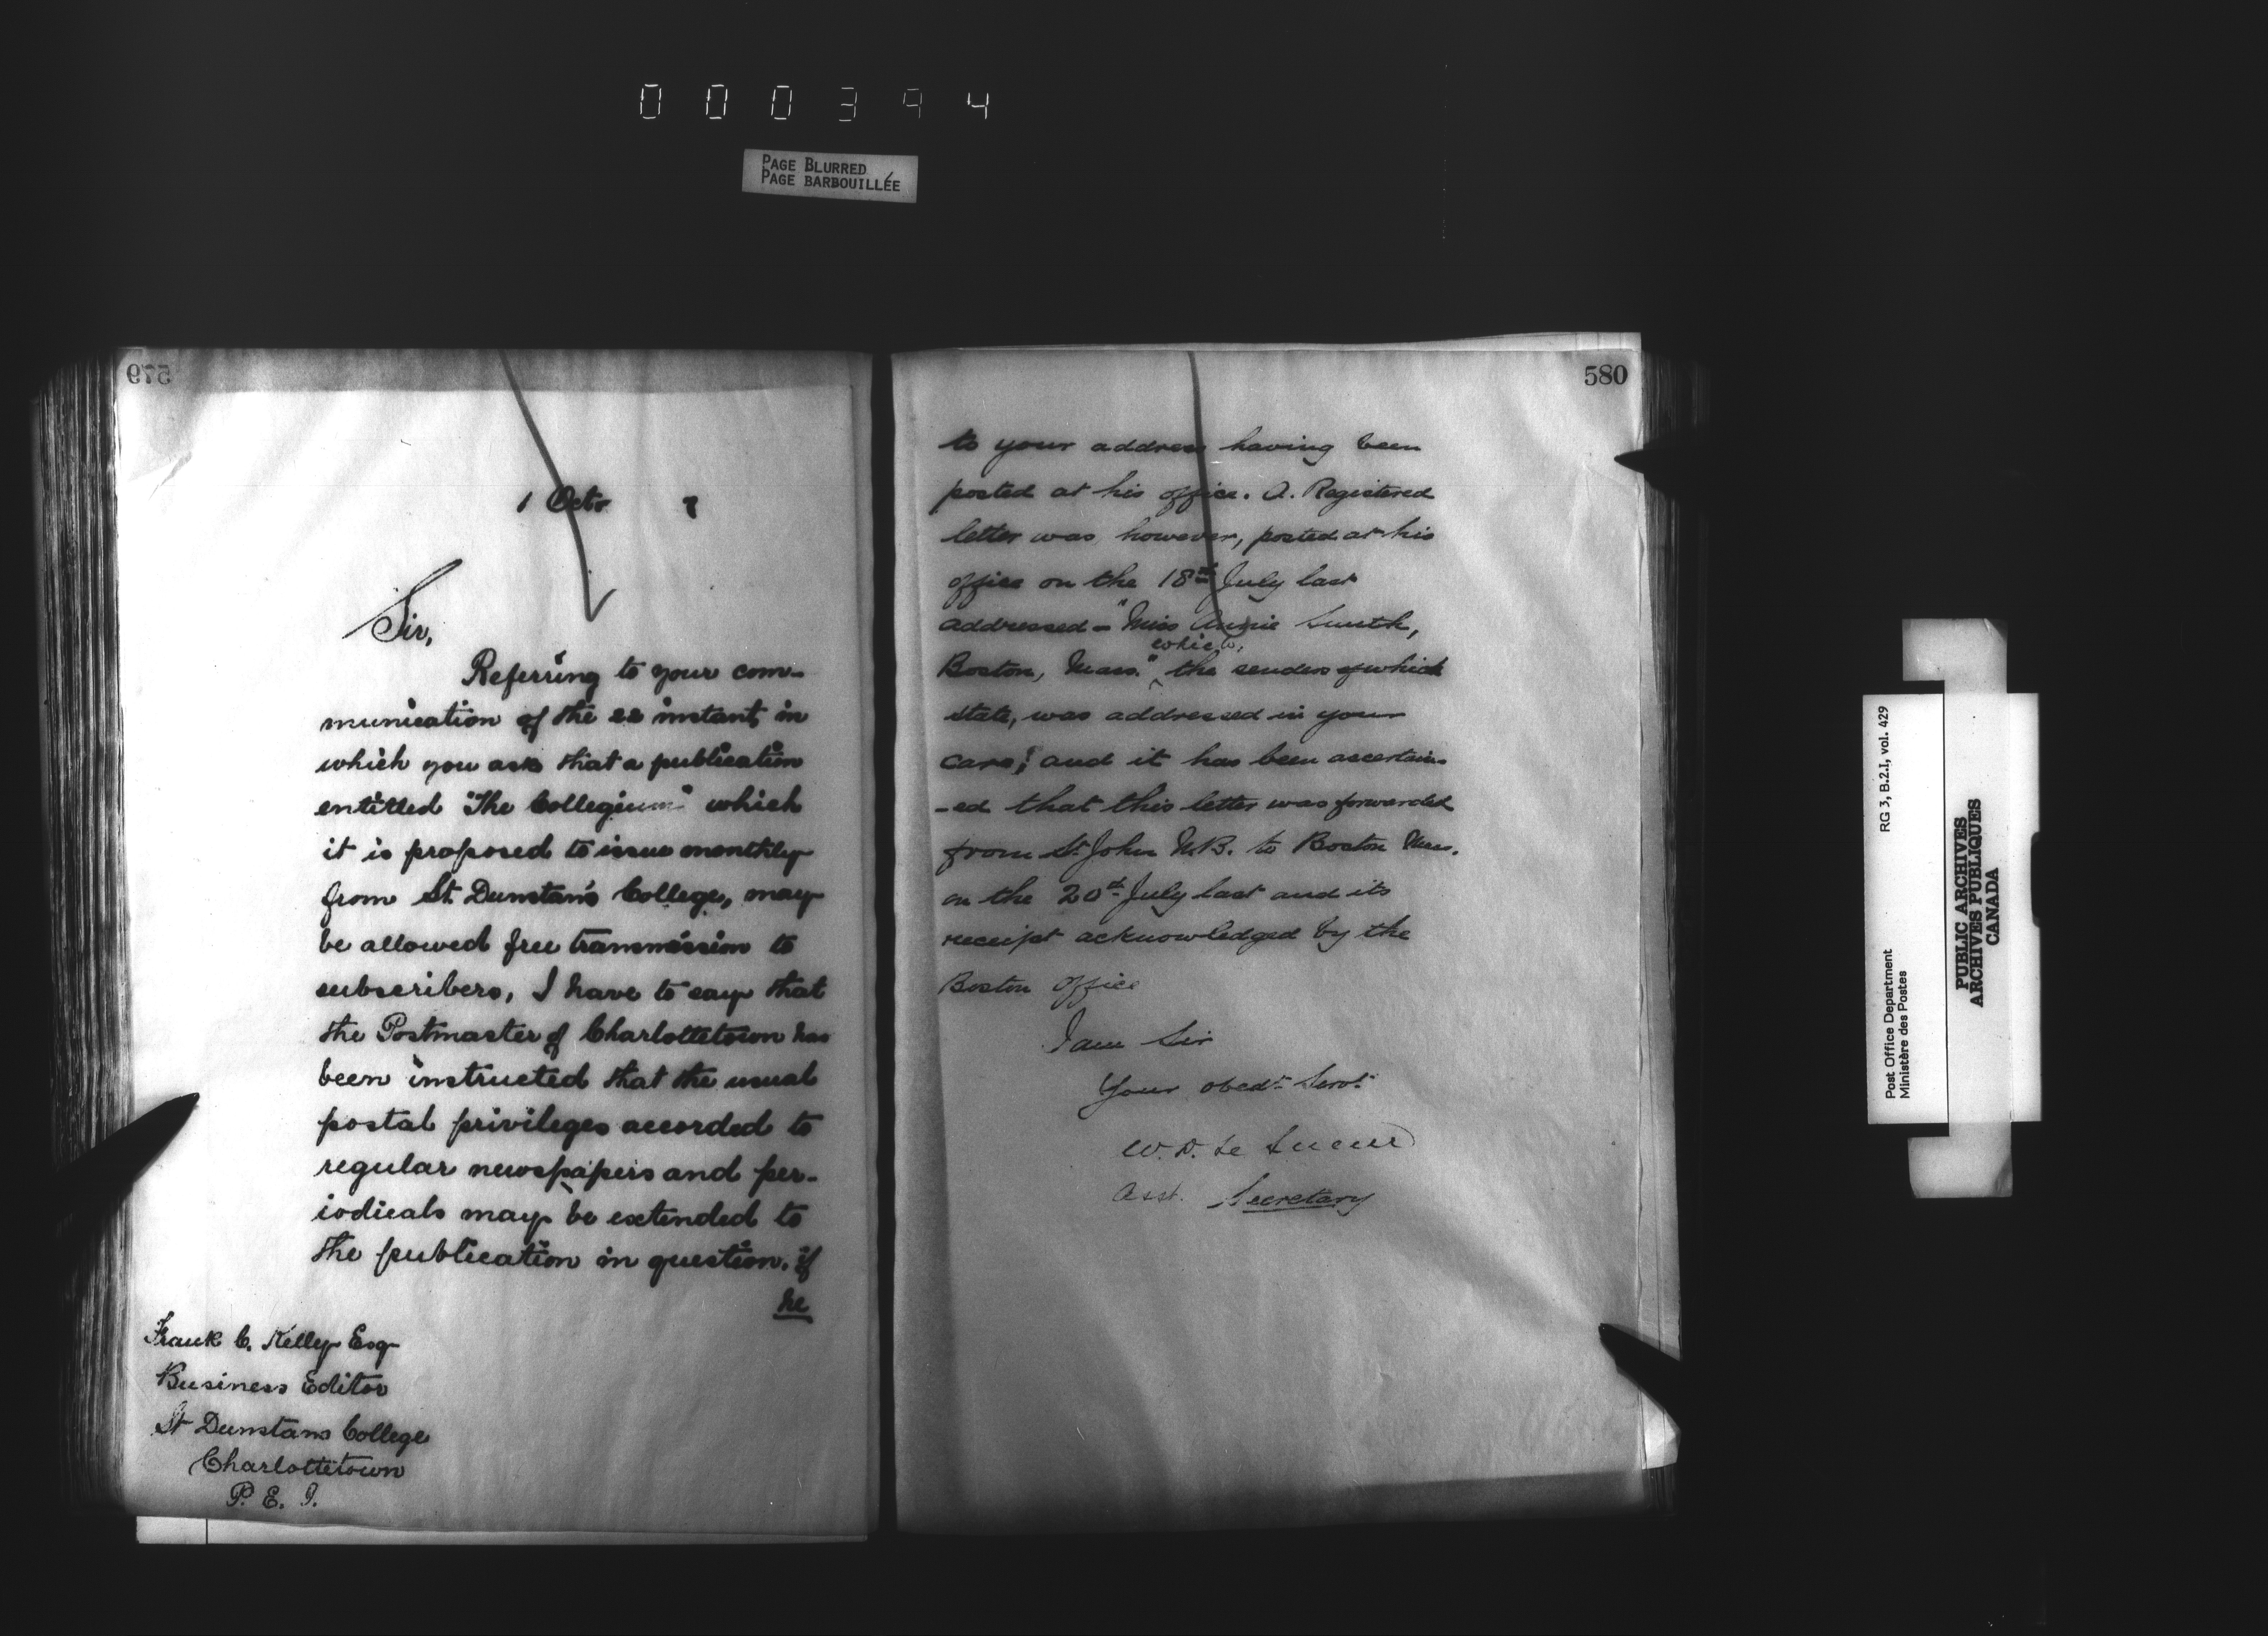 000394
PAGE BLURRED
PAGE BARBOUILLÉE
579
1 Octr 7
Sir,
Referring to your com-
munication of the 22 instant, in
which you ask that a publication
entitled "The Collegium" which
it is proposed to issue monthly
from St. Dunstan's College, may
be allowed free transmission to
subscribers, I have to say that
the Postmaster of Charlottetown has
been instructed that the usual
postal privileges accorded to
regular newspapers and per-
iodicals may be extended to
the publication in question, if
he
Frank C. Kelly Esq
Business Editor
St Dunstans College
Charlottetown
P. E. I.
580
to your address having been
posted at his office. A. Registered
letter was, however, posted at his
office on the 18th July last
addressed - "Miss Annie Smith,
which,
Boston, Mass." the senders of which
state, was addressed in your
care; and it has been ascertain-
-ed that this letter was forwarded
from St. John N.B. to Boston Mass.
on the 20th July last and its
receipt acknowledged by the
Boston Office
I am Sir
Your obedt. Servt.
W. D. Le Sueur
Asst. Secretary
RG 3, B.2.I, vol. 429
Post Office Department
Ministère des Postes
PUBLIC ARCHIVES
ARCHIVES PUBLIQUES
CANADA